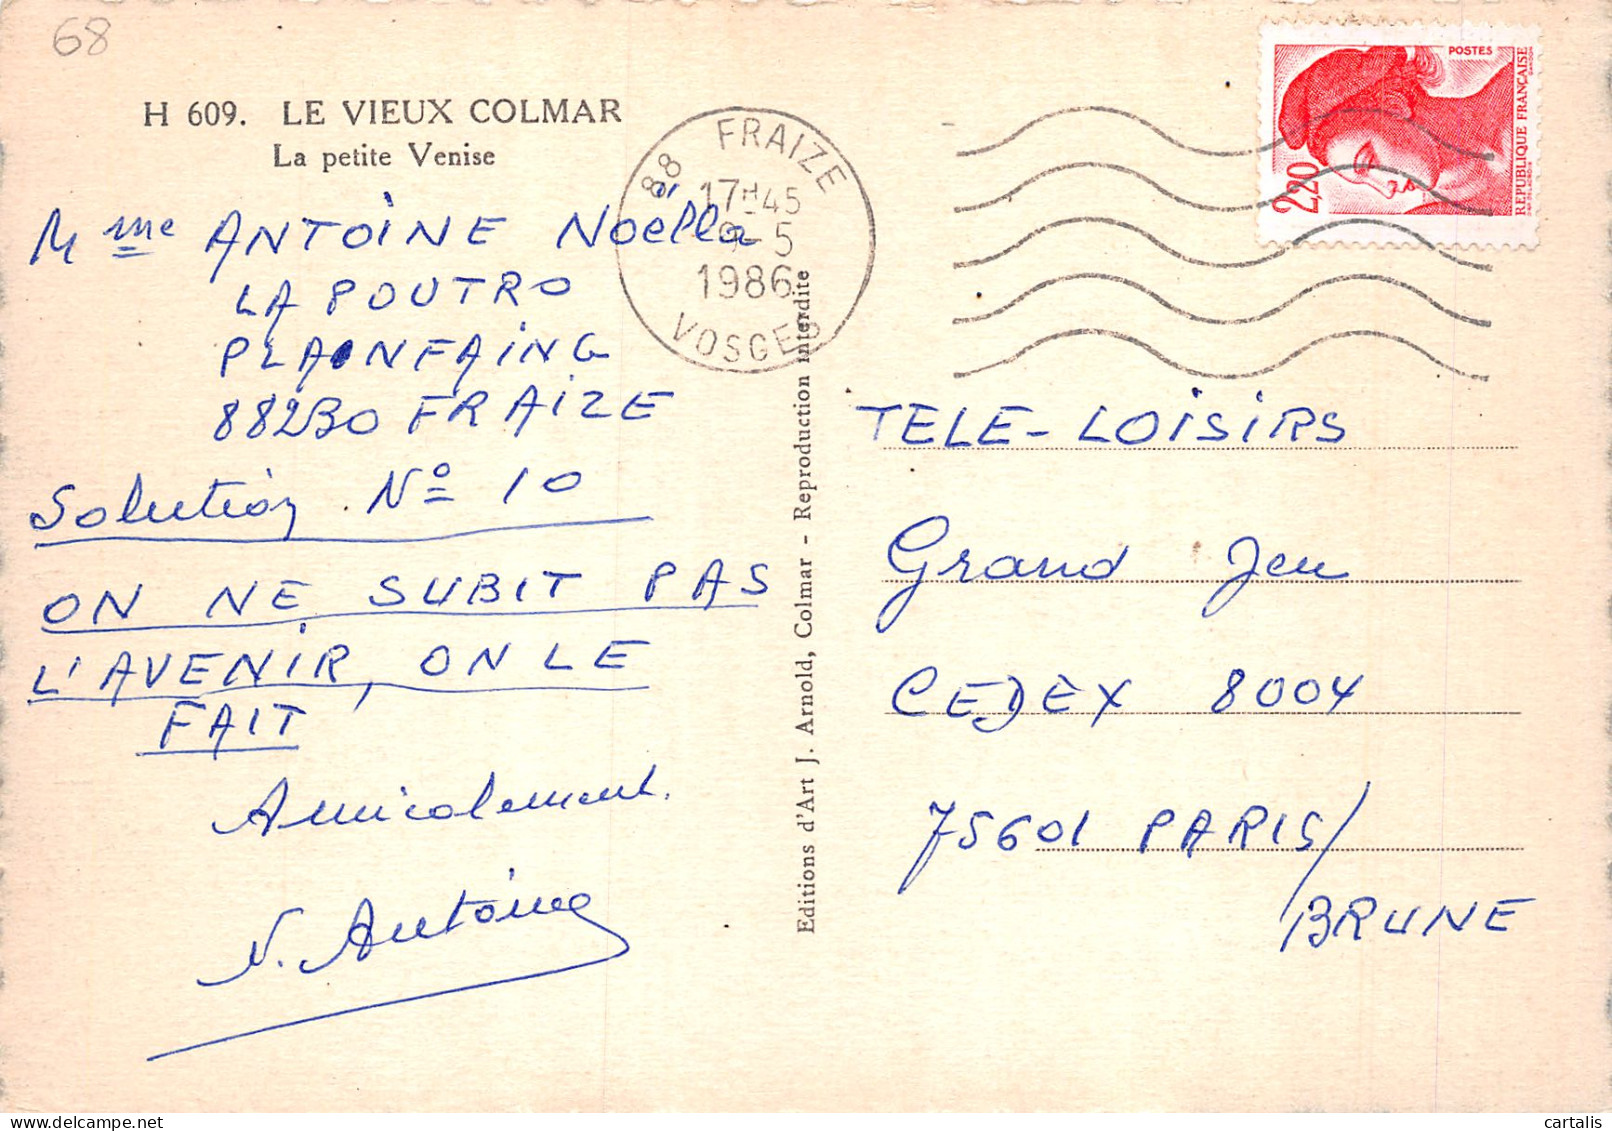 68
H 609. LE VIEUX COLMAR
La petite Venise
Mme ANTOINE Noëlla
LA POUTRO
PLAINFAING
88230 FRAIZE
Solution No 10
ON NE SUBIT PAS
L'AVENIR, ON LE
FAIT
Amicalement.
N. Antoine
88 FRAIZE
17H45
9-5
1986
VOSGES
Editions d'Art J. Arnold, Colmar - Reproduction interdite
POSTES
REPUBLIQUE FRANÇAISE
2,20
TELE-LOISIRS
Grand Jeu
CEDEX 8004
75601 PARIS/
BRUNE
cartalis